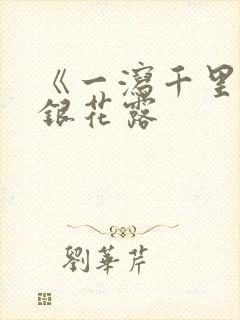 《一瀉千里
銀花露
劉華芹